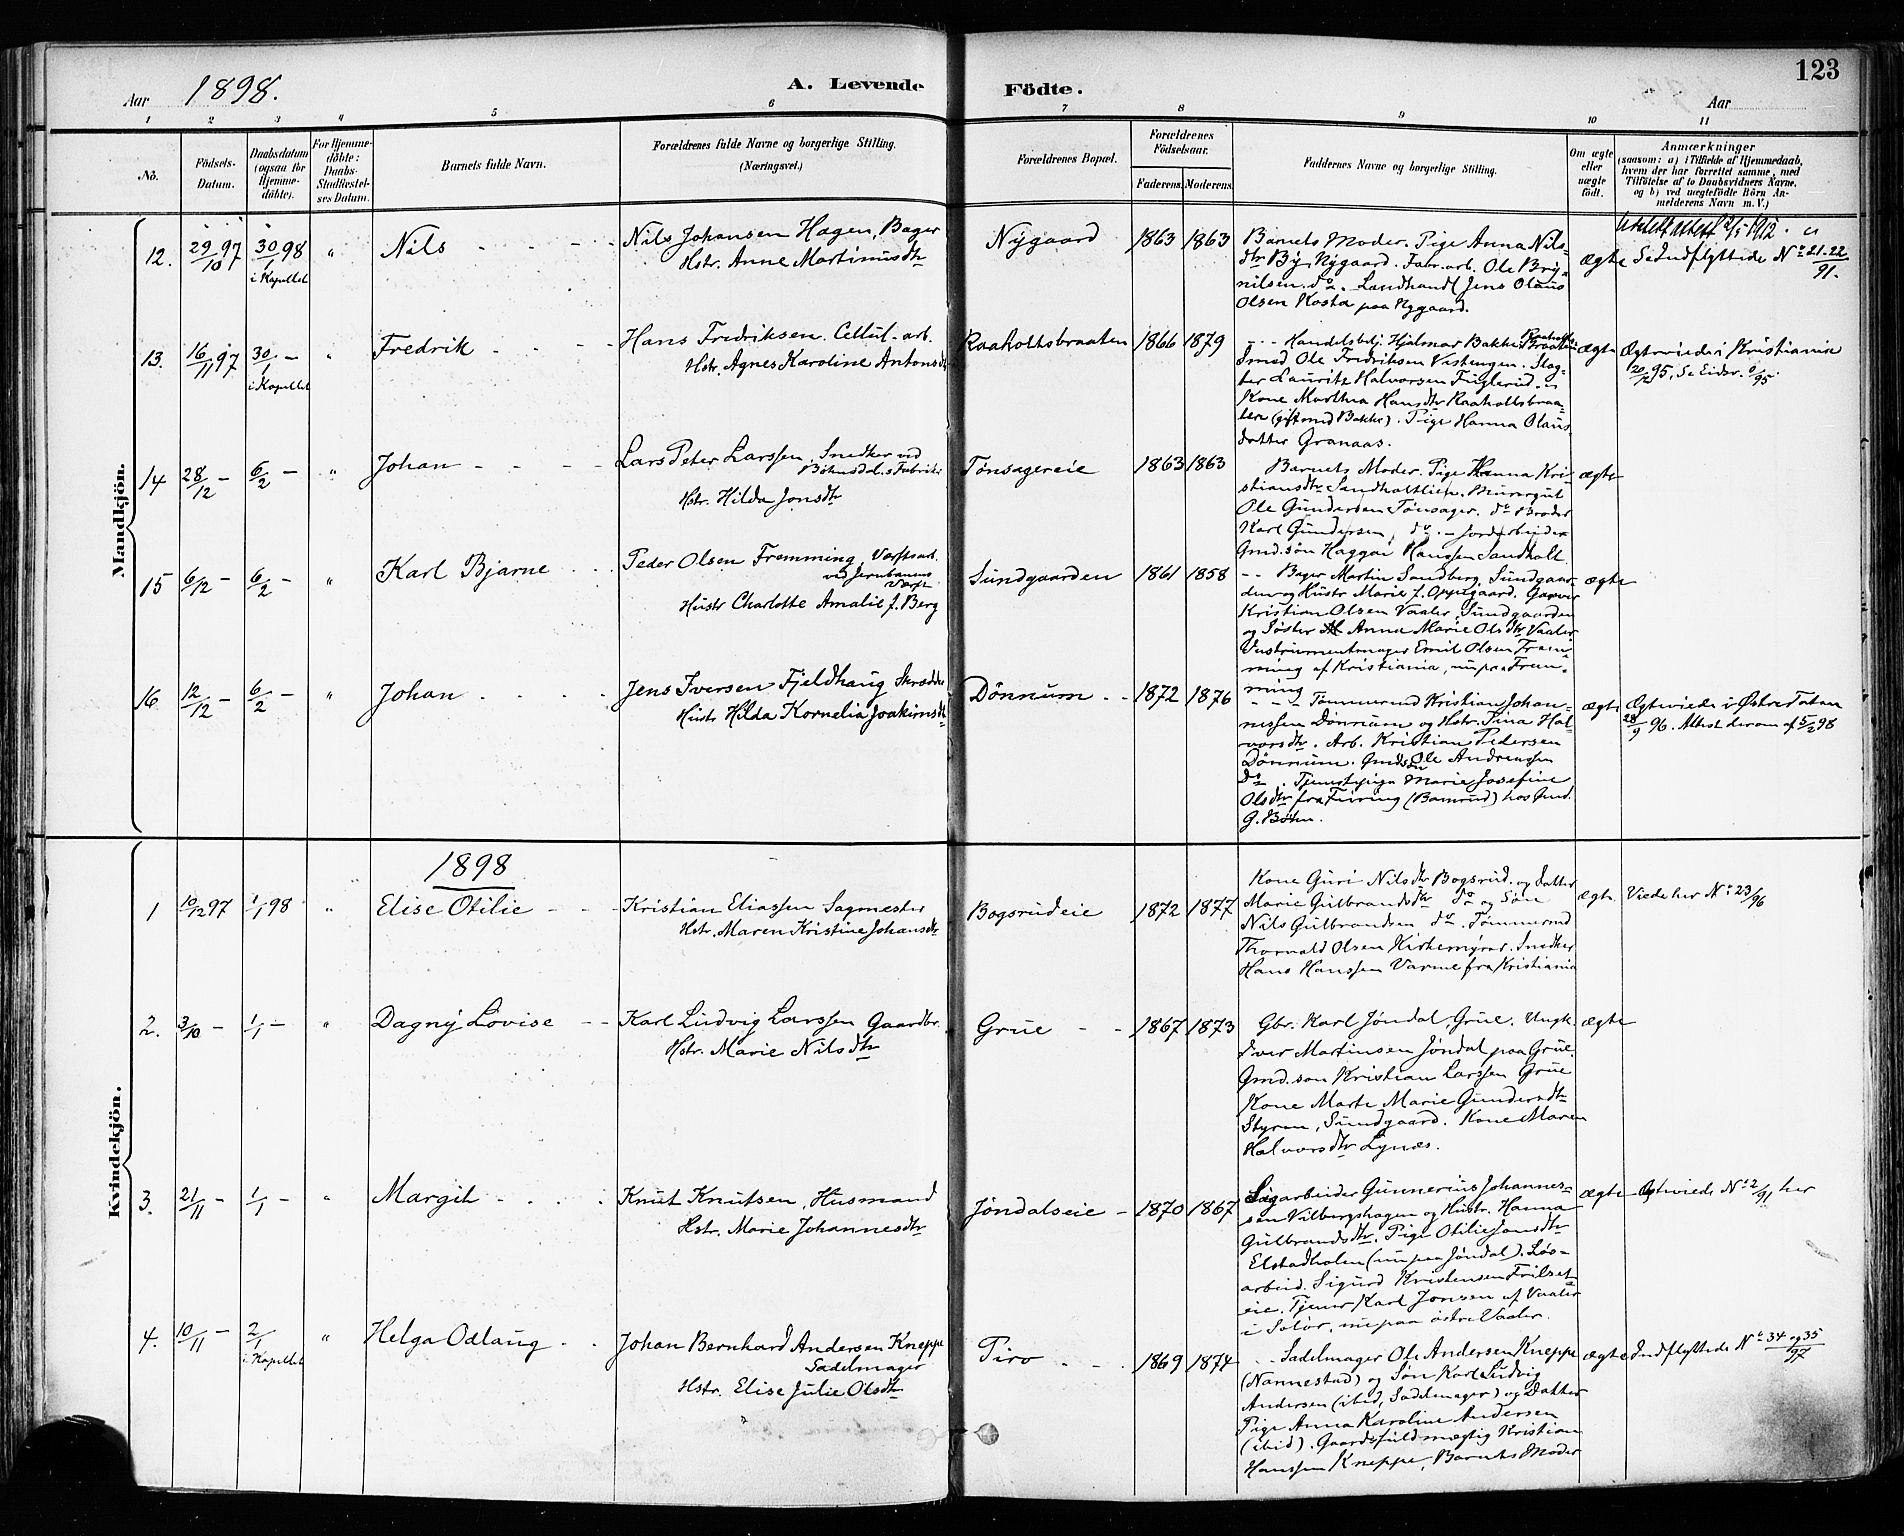 123
Aar 1898.
A. Levende Födte.
Aar
1 2 3 4 5 6 7 8 9 10 11
No.
Födsels-Datum.
Daabsdatum (ogsaa for Hjemme-döbte).
For Hjemme-döbte: Daabs-Stadfæstel-ses Datum.
Barnets fulde Navn.
Forældrenes fulde Navne og borgerlige Stilling.
(Næringsvei.)
Forældrenes Bopæl.
Forældrenes Födselsaar.
Faderens. Moderens.
Faddernes Navne og borgerlige Stilling.
Om ægte eller uægte födt.
Anmærkninger
(saasom: a) i Tilfælde af Hjemmedaab,
hvem der har forrettet samme, med
Tilföielse af to Daabsvidners Navne,
og b) ved uægtefödte Börn An-
melderens Navn m. V.)
Mandkjön.
12. 29/10 97 30/1 98 i Kapellet " Nils
Nils Johansen Hagen, Bager
Hstr. Anne Martinusdtr
Nygaard 1863 1863
Barnets Moder. Pige Anna Nils-
dtr By, Nygaard. Fabr.arb. Ole Bry-
nilsen do. Landhandl Jens Olaus
Olsen Kosta paa Nygaard.
ægte
Se Indflyttede No 21.22/91.
13. 16/11 97 30/1 — i Kapellet " Fredrik
Hans Fredriksen. Cellul. arb.
Hstr. Agnes Karoline Antonsdt
Raaholtsbraaten 1866 1879
— Handelsbetj. Hjalmar Bakke Raaholts-Braaten
Smed Ole Fredriksen Vestengen. Slag-
ter Lauritz Halvorsen Fuglerud.
Kone Marthea Hansdtr Raaholtsbraa-
ten (gift med Bakke). Pige Hanna Olaus-
datter Granaas.
ægte
Ægteviede i Kristiania
20/12 95, Se Eidsv. 0/95.
14 28/12 — 6/2 — " Johan
Lars Peter Larssen, Snedker ved
Bøhnsdal.s Fabriker
Hstr. Hilda Jonsdtr
Tønsagereie 1863 1863
Barnets Moder. Pige Hanna Kri-
stiansdtr Sandholtlien. Murergut
Ole Gundersen Tønsager. do Broder
Karl Gundersen, do. Jordarbeider
Gmd. søn Haggai Hanssen Sandholt
ægte
15 6/12 — 6/2 — " Karl Bjarne
Peder Olsen Fremming, Værftsarb.
ved Jernbanens Værft
Hustr Charlotte Amalie f. Berg
Sundgaarden 1861 1858
— Bager Martin Sandberg, Sundgaar-
den og Hustr Marie f. Oppegaard. Garver
Kristian Olsen Vaaler, Sundgaarden
og Søster Anna Marie Olsdtr Vaaler
Instrumentmager Emil Olsen Frem-
ming af Kristiania, nu paa Frem-
ming
ægte
16 12/12 — 6/2 — " Johan
Jens Iversen Fjeldhaug Skrædder
Hustr Hilda Kornelia Joakimsdtr
Dønnum 1872 1876
— Tømmermd Kristian Johan-
nessen Dønnum og Hstr. Tina Hal-
vorsdtr. Arb. Kristian Pedersen
Dønnum. Gmdsøn Ole Andreassen
Do. Tjenestepige Marie Josefine
Olsdtr fra Furung (Bamrud) hos Gmd.
G. Bøhn.
ægte
Ægteviede i Østre Toten
28/9 96. Attest derom af 5/2 98
Kvindekjön.
1898
1 10/12 97 1/1 98 " Elise Otilie
Kristian Eliassen Sagmester
Hstr. Maren Kristine Johansdtr
Bogsrudeie 1872 1877
Kone Guri Nilsdtr Bogsrud. og Datter
Marie Gulbrandsdtr Do og Søn
Nils Gulbrandsen do. Tømmermd
Thorvald Olsen Kirkemyrer. Snedker
Hans Hanssen Varme fra Kristiania
ægte
Viede her No 23/96
2. 3/10 — 1/1 — " Dagny Lovise
Karl Ludvig Larssen Gaardbr.
Hstr. Marie Nilsdtr
Grue 1867 1873
Gbr. Karl Jøndal, Grue. Ungk.
Iver Martinsen Jøndal paa Grue.
Gmd. søn Kristian Larssen Grue
Kone Marte Marie Gundersdtr
Styren, Sundgaard. Kone Maren
Halvorsdtr Lynæs.
ægte
3. 21/11 — 1/1 — " Margit
Knut Knutsen, Husmand
Hstr. Marie Johannesdtr
Jøndalseie 1870 1867
Sagarbeider Gunnerius Johannes-
sen Vilbergshagen og Hustr. Hanna
Gulbrandsdtr. Pige Otilie Jonsdtr
Elstadholen (nu paa Jøndal). Løs-
arbeid. Sigurd Kristensen Frilset-
eie. Tjener Karl Jonsen af Vaaler
i Solør, nu paa østre Vaaler.
ægte
Ægteviede No 2/91 her
4. 10/11 — 2/1 i Kapellet " Helga Odlaug
Johan Bernhard Andersen Kneppe
Sadelmager
Hstr. Elise Julie Olsdtr
Tiro 1869 1874
— Sadelmager Ole Andersen Kneppe
(Nannestad) og Søn Karl Ludvig
Andersen (ibid, Sadelmager) og Datter
Pige Anna Karoline Andersen
(ibid). Gaardsfuldmægtig Kristian
Hanssen Kneppe, Barnets Moder
ægte
Indflyttede No 34 og 35/97